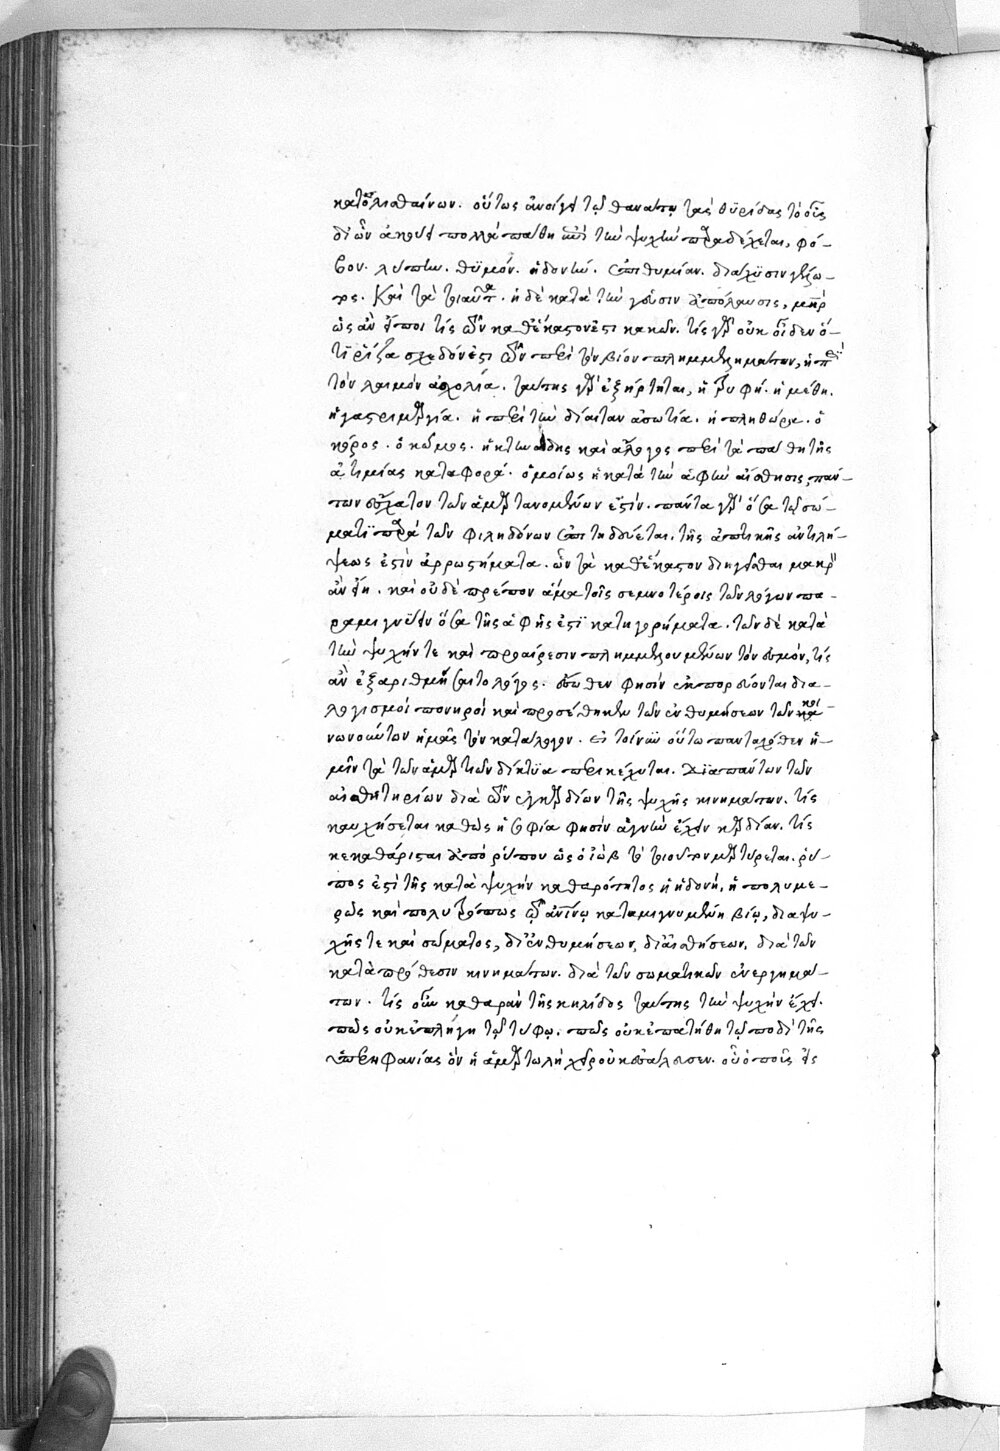 κατολισθαίνων. οὕτως ἀνοίγει τῷ θανάτῳ τὰς θυρίδας τὸ οὖς
δι' ὧν ἀκούει πολλὰ πάθη κατὰ τὴν ψυχὴν παραδέχεται, φό-
βον. λύπην. θυμόν. ἡδονήν. ἐπιθυμίαν. διάχυσιν γέλω-
τος. Καὶ τὰ τοιαῦτα. ἡ δὲ κατὰ τὴν γεῦσιν ἀπόλαυσις, μηρ
ὡς ἂν εἴποι τίς τῶν καθέκαστονἐστι κακῶν. τίς γὰρ οὐκ οἶδεν ὅ-
τι ῥίζα σχεδόν ἐστι τῶν περὶ τὸν βίον πλημμελημάτων, ἡ περὶ
τὸν λαιμὸν ἀσχολία. ταύτης γὰρ ἐξήρτηται, ἡ τρυφή. ἡ μέθη.
ἡ γαστριμαργία. ἡ περὶ τὴν δίαιταν ἀσωτία. ἡ πληθώρα. ὁ
κόρος. ὁ κῶμος. ἡ κτηνώδης καὶ ἄλογος περὶ τὰ πάθη τῆς
ἀτιμίας καταφορά. ὁμοίως ἡ κατὰ τὴν ἁφὴν αἴσθησις, πάν-
των ἔσχατον τῶν ἁμαρτανομένων ἐστίν. πάντα γὰρ ὅσα τῷ σώ-
ματι παρὰ τῶν φιληδόνων ἐπιτηδεύεται. τῆς ἁπτικῆς ἀντιλή-
ψεως ἐστὶν ἀρρωστήματα. ὧν τὰ καθέκαστον διηγεῖσθαι μακρὸν
ἂν εἴη. καὶ οὐδὲ πρέπον ἅμα τοῖς σεμνοτέροις τῶν λόγων πα-
ραμιγνύειν ὅσα τῆς ἁφῆς ἐστὶ κατηγορήματα. τῶν δὲ κατὰ
τὴν ψυχήν τε καὶ προαίρεσιν πλημμελουμένων τὸν ἑσμὸν, τίς
ἂν ἐξαριθμήσαιτο λόγος. ἔσωθεν φησὶν ἐκπορεύονται δια-
λογισμοὶ πονηροὶ καὶ προσέθηκεν τῶν ἐνθυμήσεων τῶν κοι-
νωνούντων ἡμᾶς τὸν κατάλογον. εἰ τοίνυν οὕτω πανταχόθεν ἡ-
μῖν τὰ τῶν ἁμαρτιῶν δίκτυα περικέχυται. διὰ πάντων τῶν
αἰσθητηρίων διὰ τῶν ἐγκαρδίων τῆς ψυχῆς κινημάτων. τίς
καυχήσεται καθὼς ἡ σοφία φησὶν ἁγνὴν ἔχειν καρδίαν. τίς
κεκαθάρισται ἀπὸ ῥύπου ὡς ὁ ἰὼβ τὸ τοιοῦτον μαρτύρεται. ῥύ-
πος ἐστὶ τῆς κατὰ ψυχὴν καθαρότητος ἡ ἡδονή, ἡ πολυμε-
ρῶς καὶ πολυτρόπως τῷ ἀνίνῳ καταμιγνυμένη βίῳ, διὰ ψυ-
χῆς τε καὶ σώματος, δι' ἐνθυμήσεων, δι' αἰσθήσεων, διὰ τῶν
κατὰ πρόθεσιν κινημάτων. διὰ τῶν σωματικῶν ἐνεργημά-
των. τίς οὖν καθαρὰν τῆς κηλίδος ταύτης τὴν ψυχὴν ἔχει.
πῶς οὐκ ἐπλήγη τῷ τύφῳ. πῶς οὐκ ἐπατήθη τῷ ποδὶ τῆς
ὑπερηφανίας ὃν ἡ ἁμαρτωλὴ χεὶρ οὐκ ἐσάλευσεν. οὗ ὁ ποῦς εἰς